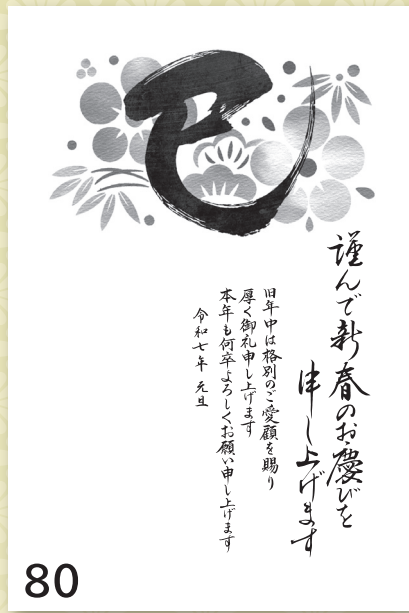 巳
謹んで新春のお慶びを
申し上げます
旧年中は格別のご愛顧を賜り
厚く御礼申し上げます
本年も何卒よろしくお願い申し上げます
令和七年 元旦
80